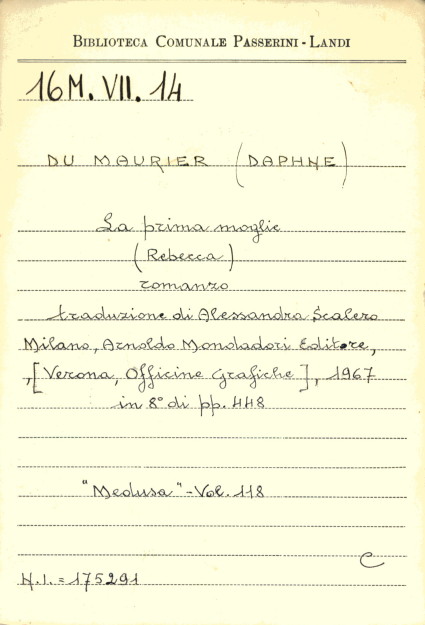 BIBLIOTECA COMUNALE PASSERINI - LANDI
16 M. VII. 14
DU MAURIER (DAPHNE)
La prima moglie
(Rebecca)
romanzo
traduzione di Alessandra Scalero
Milano, Arnoldo Mondadori Editore,
,[Verona, Officine Grafiche], 1967
in 8° di pp. 448
"Medusa" - Vol. 118
C
N.I. = 175291